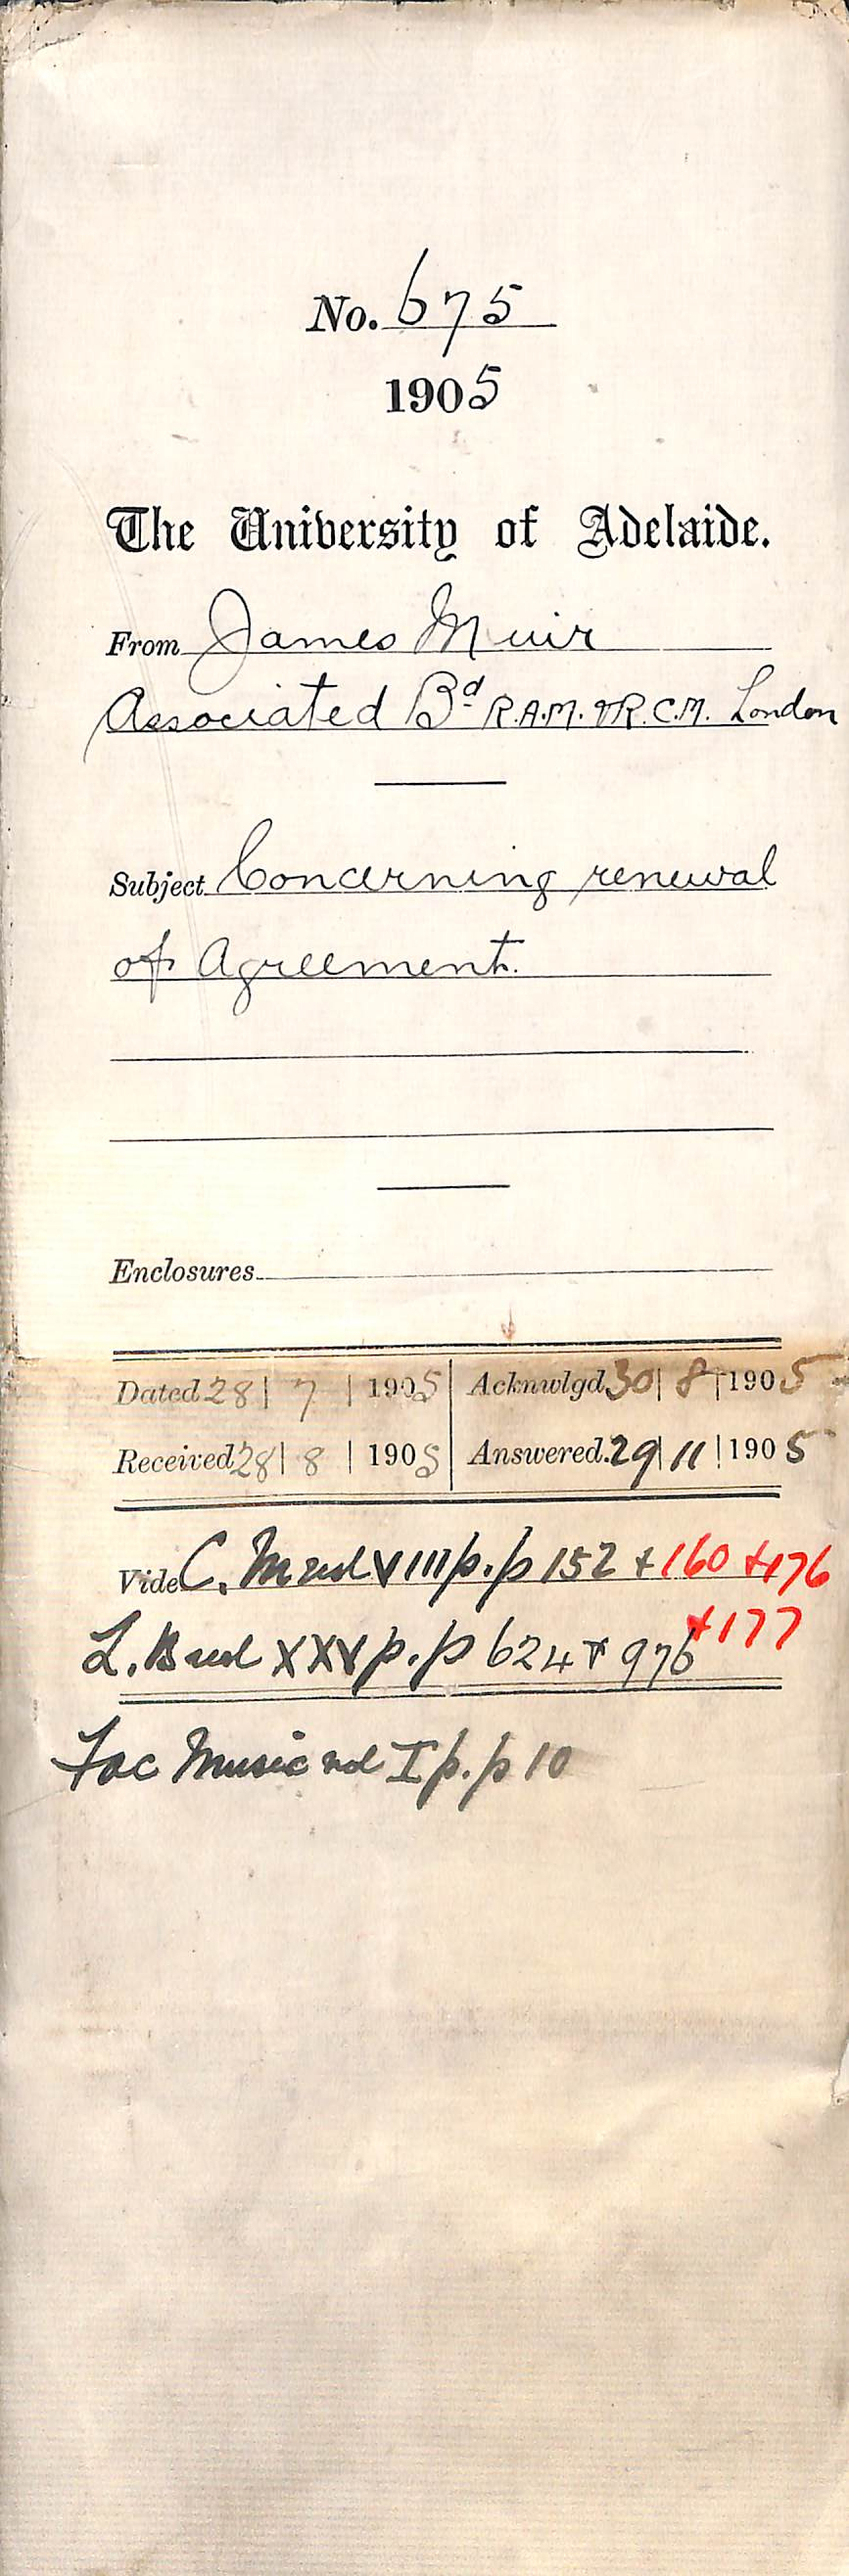 No. 675
1905
The University of Adelaide.
From James Muir
Associated Bd R.A.M. & R.C.M. London
Subject Concerning renewal
of Agreement.
Enclosures
Dated 28 | 7 | 1905 Acknwlgd 30 | 8 | 1905
Received 28 | 8 | 1905 Answered. 29 | 11 | 1905
Vide C. M vol VIII p.p 152 + 160 + 176
+ 177
L. B vol XXV p.p 624 + 976
Fac Music vol I p.p 10